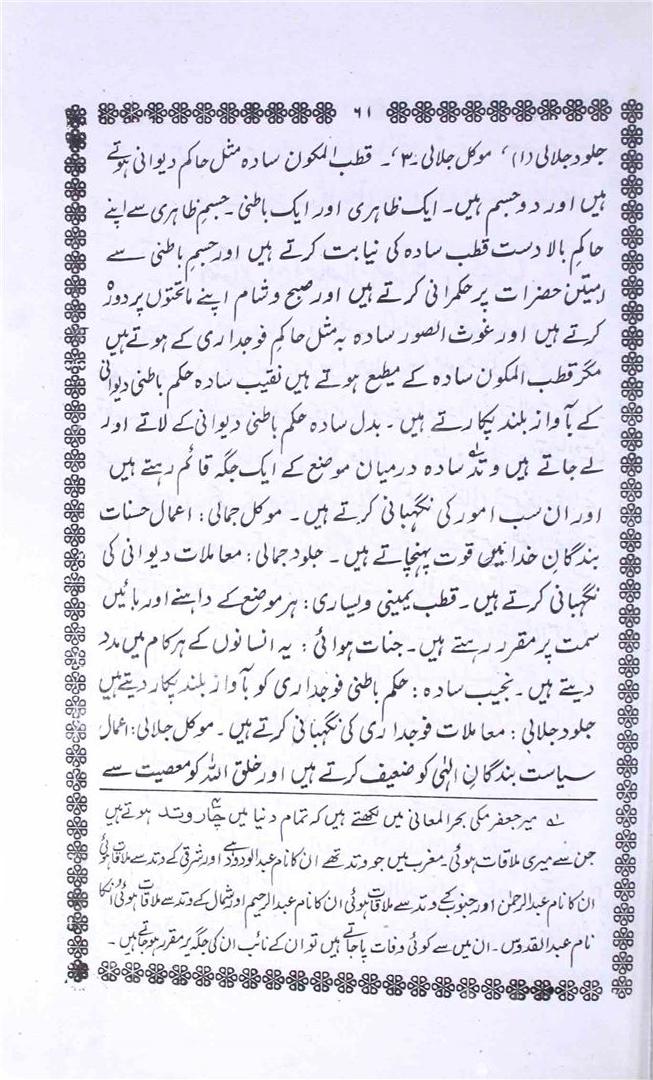 ۶۱
جلود جلالی (۱)، موکل جلالی ۔۳،۔ قطب المکون سادہ مثل حاکم دیوانی ہوتے
ہیں اور دو جسم ہیں۔ ایک ظاہری اور ایک باطنی۔ جسم ظاہری سے اپنے
حاکم بالا دست قطب سادہ کی نیابت کرتے ہیں اور جسم باطنی سے
حضرات پر حکمرانی کرتے ہیں اور صبح و شام اپنے ماتحتوں پر دورہ
کرتے ہیں اور غوث الصور سادہ بہ مثل حاکم فوجداری کے ہوتے ہیں
مگر قطب المکون سادہ کے مطیع ہوتے ہیں نقیب سادہ حکم باطنی دیوانی
کے بآواز بلند پکارتے ہیں۔ بدل سادہ حکم باطنی دیوانی کے لاتے اور
لے جاتے ہیں وتد سادہ درمیان موضع کے ایک جگہ قائم رہتے ہیں
اور ان سب امور کی نگہبانی کرتے ہیں۔ موکل جمالی: اعمال حسنات
بندگان خدا میں قوت پہنچاتے ہیں۔ جلود جمالی: معاملات دیوانی کی
نگہبانی کرتے ہیں۔ قطب یمینی ویساری: ہر موضع کے داہنے اور بائیں
سمت پر مقرر رہتے ہیں۔ جنات ہوائی: یہ انسانوں کے ہر کام میں مدد
دیتے ہیں۔ نجیب سادہ: حکم باطنی فوجداری کو بآواز بلند پکار دیتے ہیں
جلود جلالی: معاملات فوجداری کی نگہبانی کرتے ہیں۔ موکل جلالی: اعمال
سیاست بندگانِ الہٰی کو ضعیف کرتے ہیں اور خلق اللہ کو معصیت سے
لہ میر جعفر مکی بحر المعانی میں لکھتے ہیں کہ تمام دنیا میں چار وتد ہوتے ہیں
جن سے میری ملاقات ہوئی مغرب میں جو وتد تھے ان کا نام عبدالودود ہے اور شرقی کے وتد سے ملاقات ہوئی
ان کا نام عبدالرحمٰن اور جنوب کے وتد سے ملاقات ہوئی ان کا نام عبدالرحیم اور شمال کے وتد سے ملاقات ہوئی انکا
نام عبدالقدوس۔ ان میں سے کوئی وفات پا جاتے ہیں تو ان کے نائب ان کی جگہ پر مقرر ہو جاتے ہیں۔